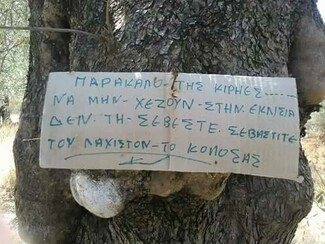 ΠΑΡΑΚΑΛΩ - ΤΗΣ ΚΙΡΗΕΣ......
ΝΑ ΜΗΝ - ΧΕΖΟΥΝ - ΣΤΗΝ ΕΚΝΣΙΑ
ΔΕΝ. ΤΗ - ΣΕΒΕΣΤΕ. ΣΕΒΑΣΤΙΤΕ
ΤΟΥ ΛΑΧΙΣΤΟΝ - ΤΟ ΚΟΛΟΣΑΣ